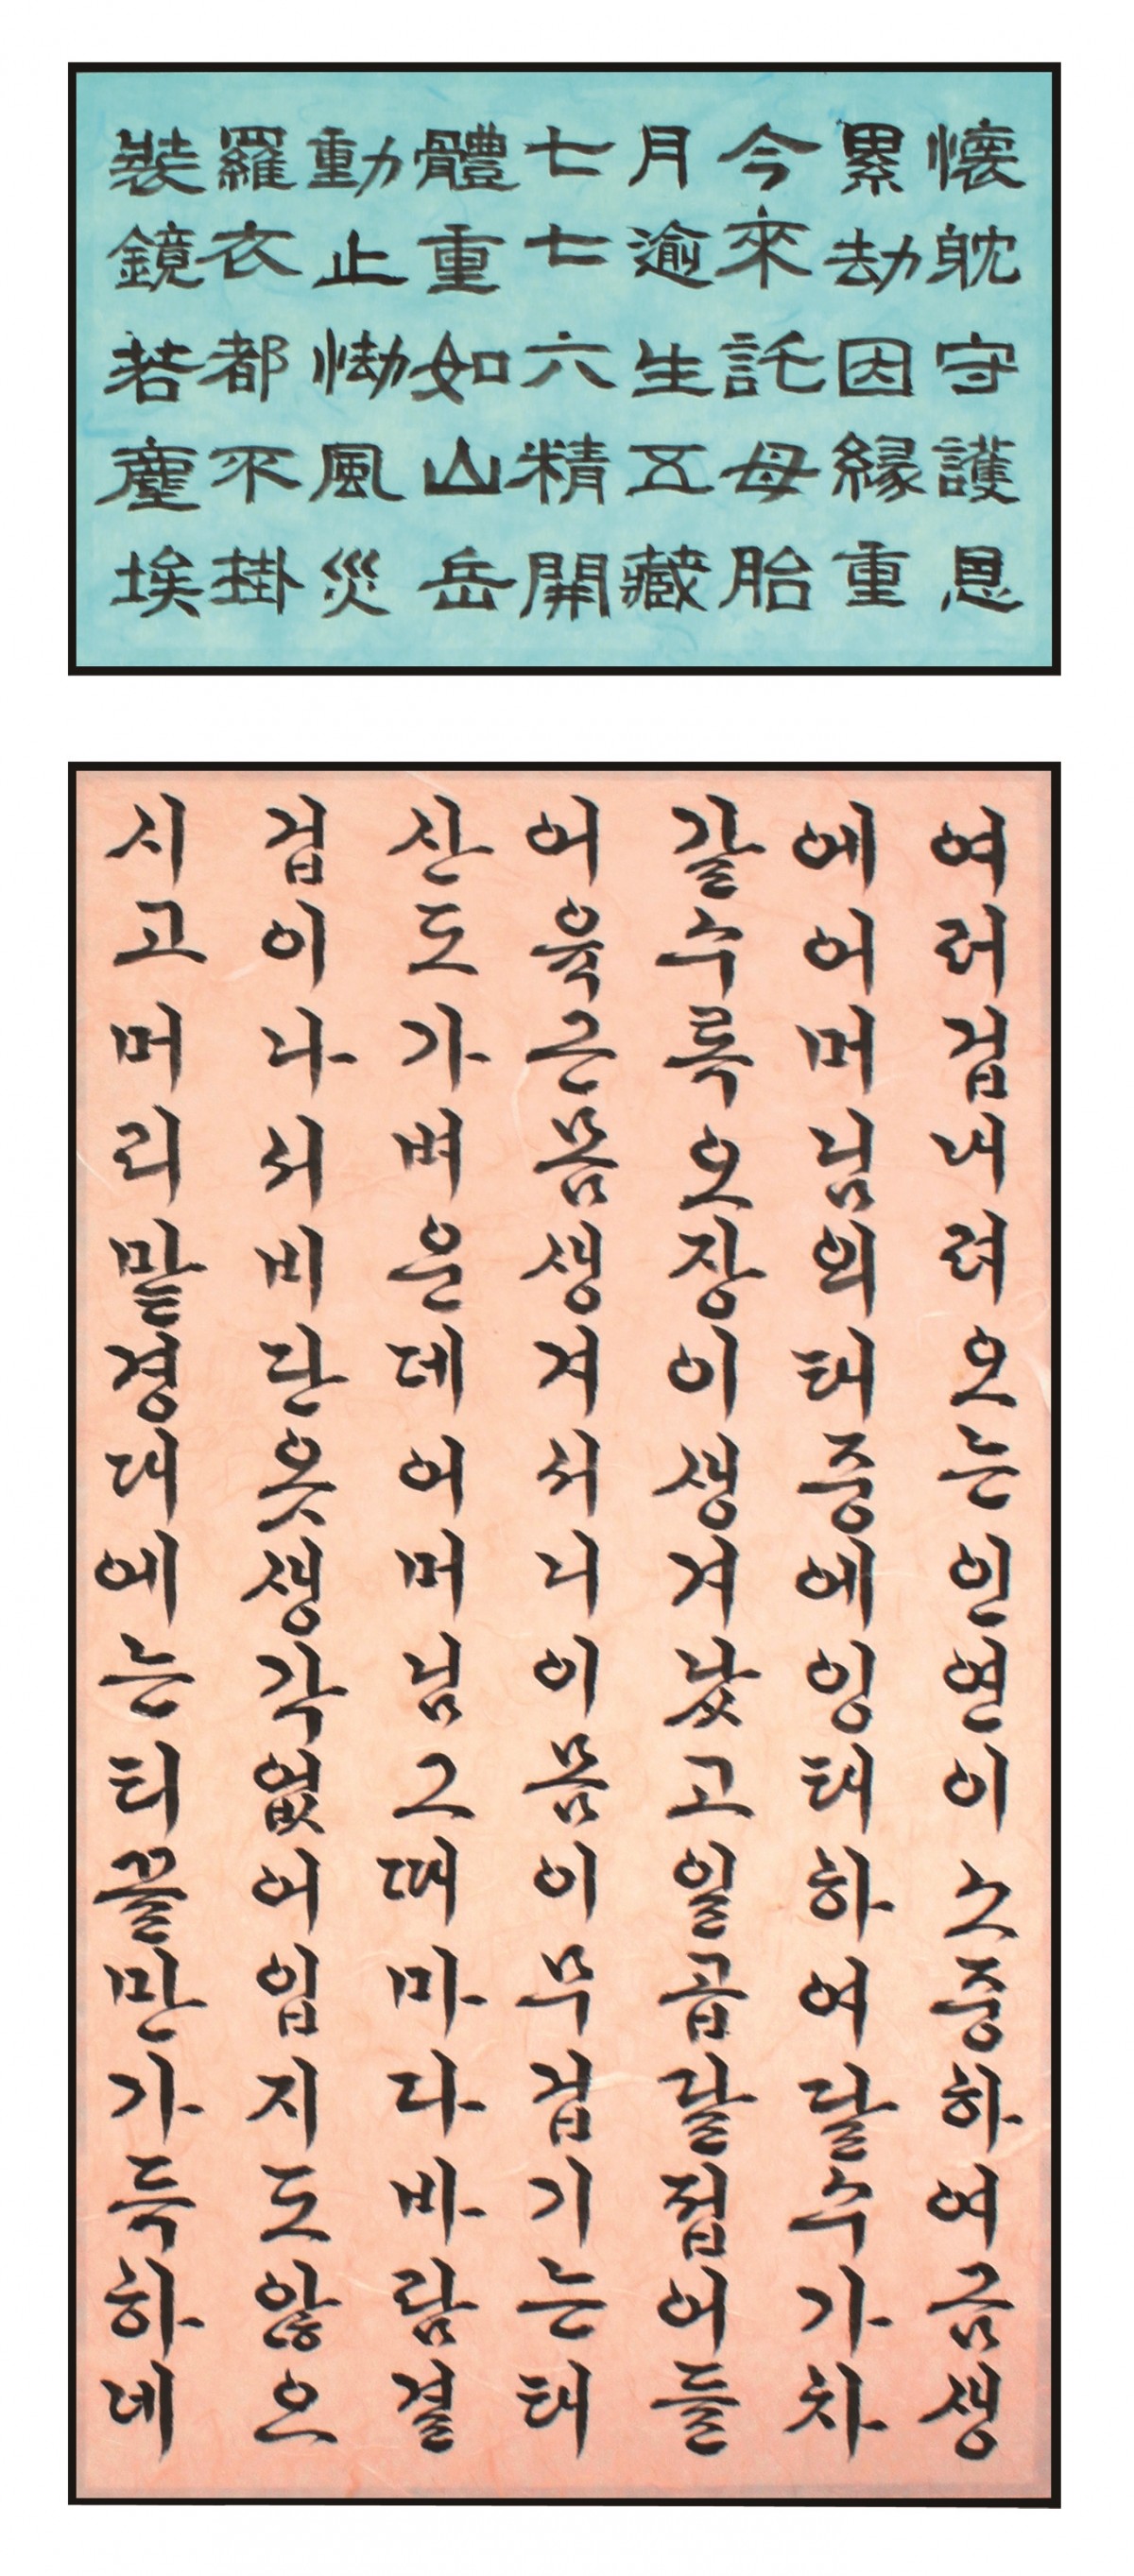 懷躭守護恩
累劫因縁重
今來託母胎
月逾生五藏
七七六精開
體重如山岳
動止㤼風災
羅衣都不掛
裝鏡若塵埃
여러겁내려오는인연이소중하여금생
에어머님의태중에잉태하여달수가차
갈수록오장이생겨났고일곱달접어들
어육근몸생겨서니이몸이무겁기는태
산도가벼운데어머님그때마다바람결
겁이나서비단옷생각없어입지도않으
시고머리맡경대에는티끌만가득하네